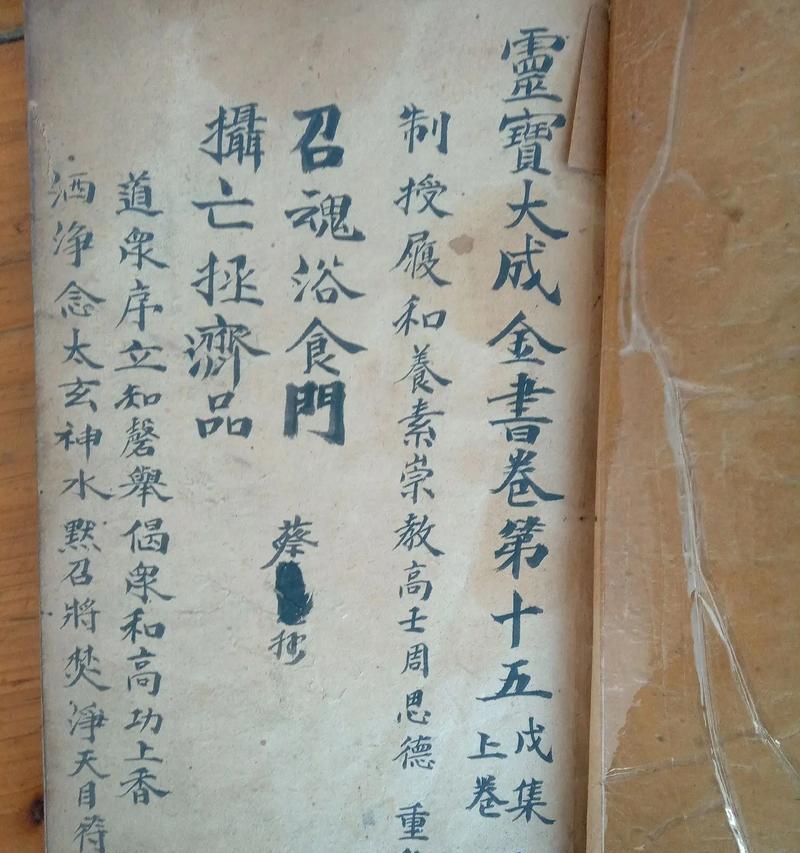 靈寶大成金書卷第十五
戊集
上卷
制授履和養素崇教高士周思德 重
召魂浴食門
蔡
攝亡拯濟品
道衆序立知磬舉偈衆和高功上香
洒淨念太玄神水默召將焚淨天目符